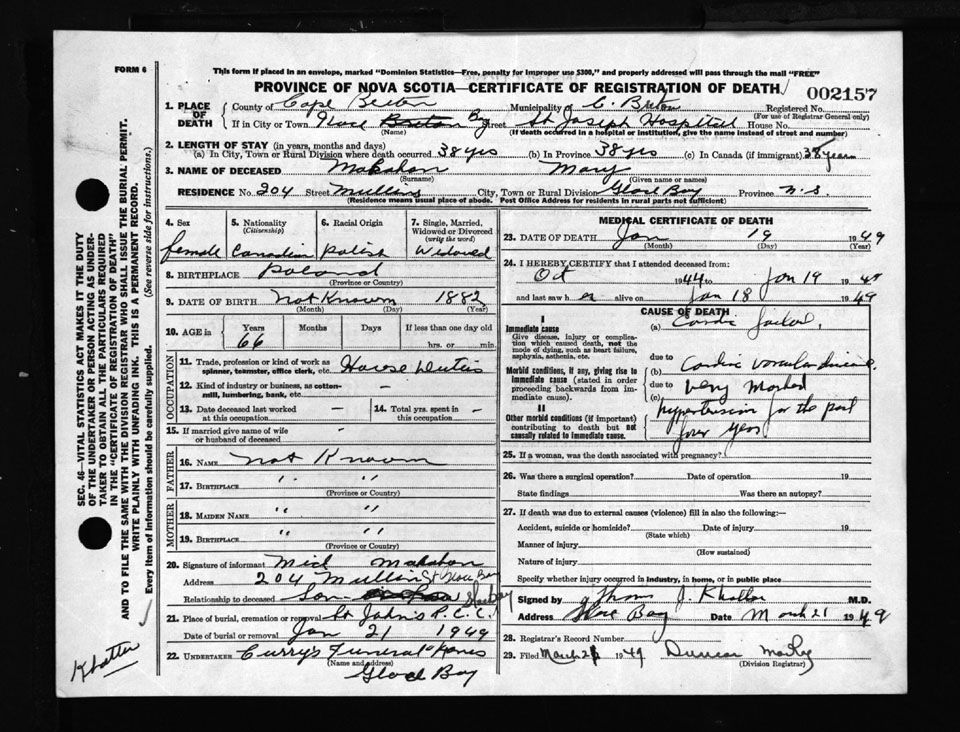 FORM 6
This form if placed in an envelope, marked "Dominion Statistics—Free, penalty for improper use $300," and properly addressed will pass through the mail "FREE"
PROVINCE OF NOVA SCOTIA—CERTIFICATE OF REGISTRATION OF DEATH
002157
1. PLACE OF DEATH
County of Cape Breton Municipality of C. Breton Registered No.
(For use of Registrar General only)
If in City or Town Glace Breton Bay Street St Joseph Hospital House No.
(Name) (If death occurred in a hospital or institution, give the name instead of street and number)
2. LENGTH OF STAY (in years, months and days)
(a) In City, Town or Rural Division where death occurred 38 yrs (b) In Province 38 yrs (c) In Canada (if immigrant) 38 years
3. NAME OF DECEASED Makahon Mary
(Surname) (Given name or names)
RESIDENCE No. 204 Street Mullins City, Town or Rural Division Glace Bay Province N.S.
(Residence means usual place of abode. Post Office Address for residents in rural parts not sufficient)
4. Sex
female
5. Nationality
(Citizenship)
Canadian
6. Racial Origin
Polish
7. Single, Married, Widowed or Divorced
(write the word)
Widowed
8. BIRTHPLACE Poland
(Province or Country)
9. DATE OF BIRTH Not Known 1882
(Month) (Day) (Year)
10. AGE in Years Months Days If less than one day old
66 hrs. or min.
OCCUPATION
11. Trade, profession or kind of work as spinner, teamster, office clerk, etc. House Duties
12. Kind of industry or business, as cotton-mill, lumbering, bank, etc. –
13. Date deceased last worked at this occupation –
14. Total yrs. spent in this occupation –
15. If married give name of wife or husband of deceased –
FATHER
16. NAME Not Known
17. BIRTHPLACE " "
(Province or Country)
MOTHER
18. MAIDEN NAME " "
19. BIRTHPLACE " "
(Province or Country)
20. Signature of informant Mick Makahon
Address 204 Mullin St Glace Bay
Relationship to deceased Son Glace Bay
21. Place of burial, cremation or removal St John's P.C.C.
Date of burial or removal Jan 21 1949
22. UNDERTAKER Curry's Funeral Home
(Name and address)
Glace Bay
MEDICAL CERTIFICATE OF DEATH
23. DATE OF DEATH Jan 19 1949
(Month) (Day) (Year)
24. I HEREBY CERTIFY that I attended deceased from:
Oct 1944 to Jan 19 19
and last saw her alive on Jan 18 1949
CAUSE OF DEATH
I
Immediate cause
Give disease, injury or complication which caused death, not the mode of dying, such as heart failure, asphyxia, asthenia, etc.
(a) Cardiac failure
due to
Morbid conditions, if any, giving rise to immediate cause (stated in order proceeding backwards from immediate cause).
(b) Cardiac vascular disease
due to
(c) Very Marked
II
Other morbid conditions (if important) contributing to death but not causally related to immediate cause.
hypertension for the past
four years
25. If a woman, was the death associated with pregnancy?
26. Was there a surgical operation? Date of operation 19
State findings Was there an autopsy?
27. If death was due to external causes (violence) fill in also the following:—
Accident, suicide or homicide? Date of injury 19
(State which)
Manner of injury
(How sustained)
Nature of injury
Specify whether injury occurred in industry, in home, or in public place
Signed by Thomas J. Khattar M.D.
Address Glace Bay Date March 21 1949
28. Registrar's Record Number
29. Filed March 21 1949 Duncan
(Division Registrar)
SEC. 46—VITAL STATISTICS ACT MAKES IT THE DUTY
OF THE UNDERTAKER OR PERSON ACTING AS UNDER-
TAKER TO OBTAIN ALL THE PARTICULARS REQUIRED
IN THE "CERTIFICATE OF REGISTRATION OF DEATH"
AND TO FILE THE SAME WITH THE DIVISION REGISTRAR WHO SHALL ISSUE THE BURIAL PERMIT.
WRITE PLAINLY WITH UNFADING INK. THIS IS A PERMANENT RECORD.
Every item of information should be carefully supplied. (See reverse side for instructions.)
Khattar